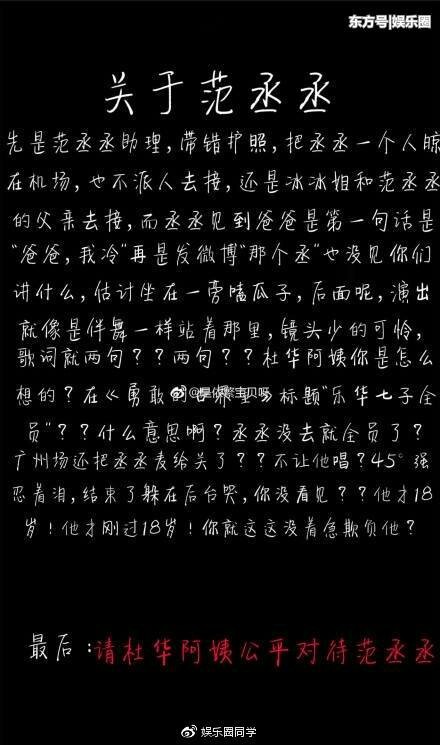 东方号|娱乐圈
关于范丞丞
先是范丞丞助理,带错护照,把丞丞一个人晾
在机场,也不派人去接,还是冰冰姐和范丞丞
的父亲去接,而丞丞见到爸爸是第一句话是
“爸爸,我冷”再是发微博“那个丞”也没见你们
讲什么,估计坐在一旁嗑瓜子,后面呢,演出
就像是伴舞一样站着那里,镜头少的可怜,
歌词就两句??两句??杜华阿姨你是怎么
想的?在《勇敢的世界里》标题“乐华七子全
员”??什么意思啊?丞丞没去就全员了?
广州场还把丞丞麦给关了??不让他唱?45°强
忍着泪,结束了躲在后台哭,你没看见??他才18
岁!他才刚过18岁!你就这这没着急欺负他?
最后:请杜华阿姨公平对待范丞丞
娱乐圈同学